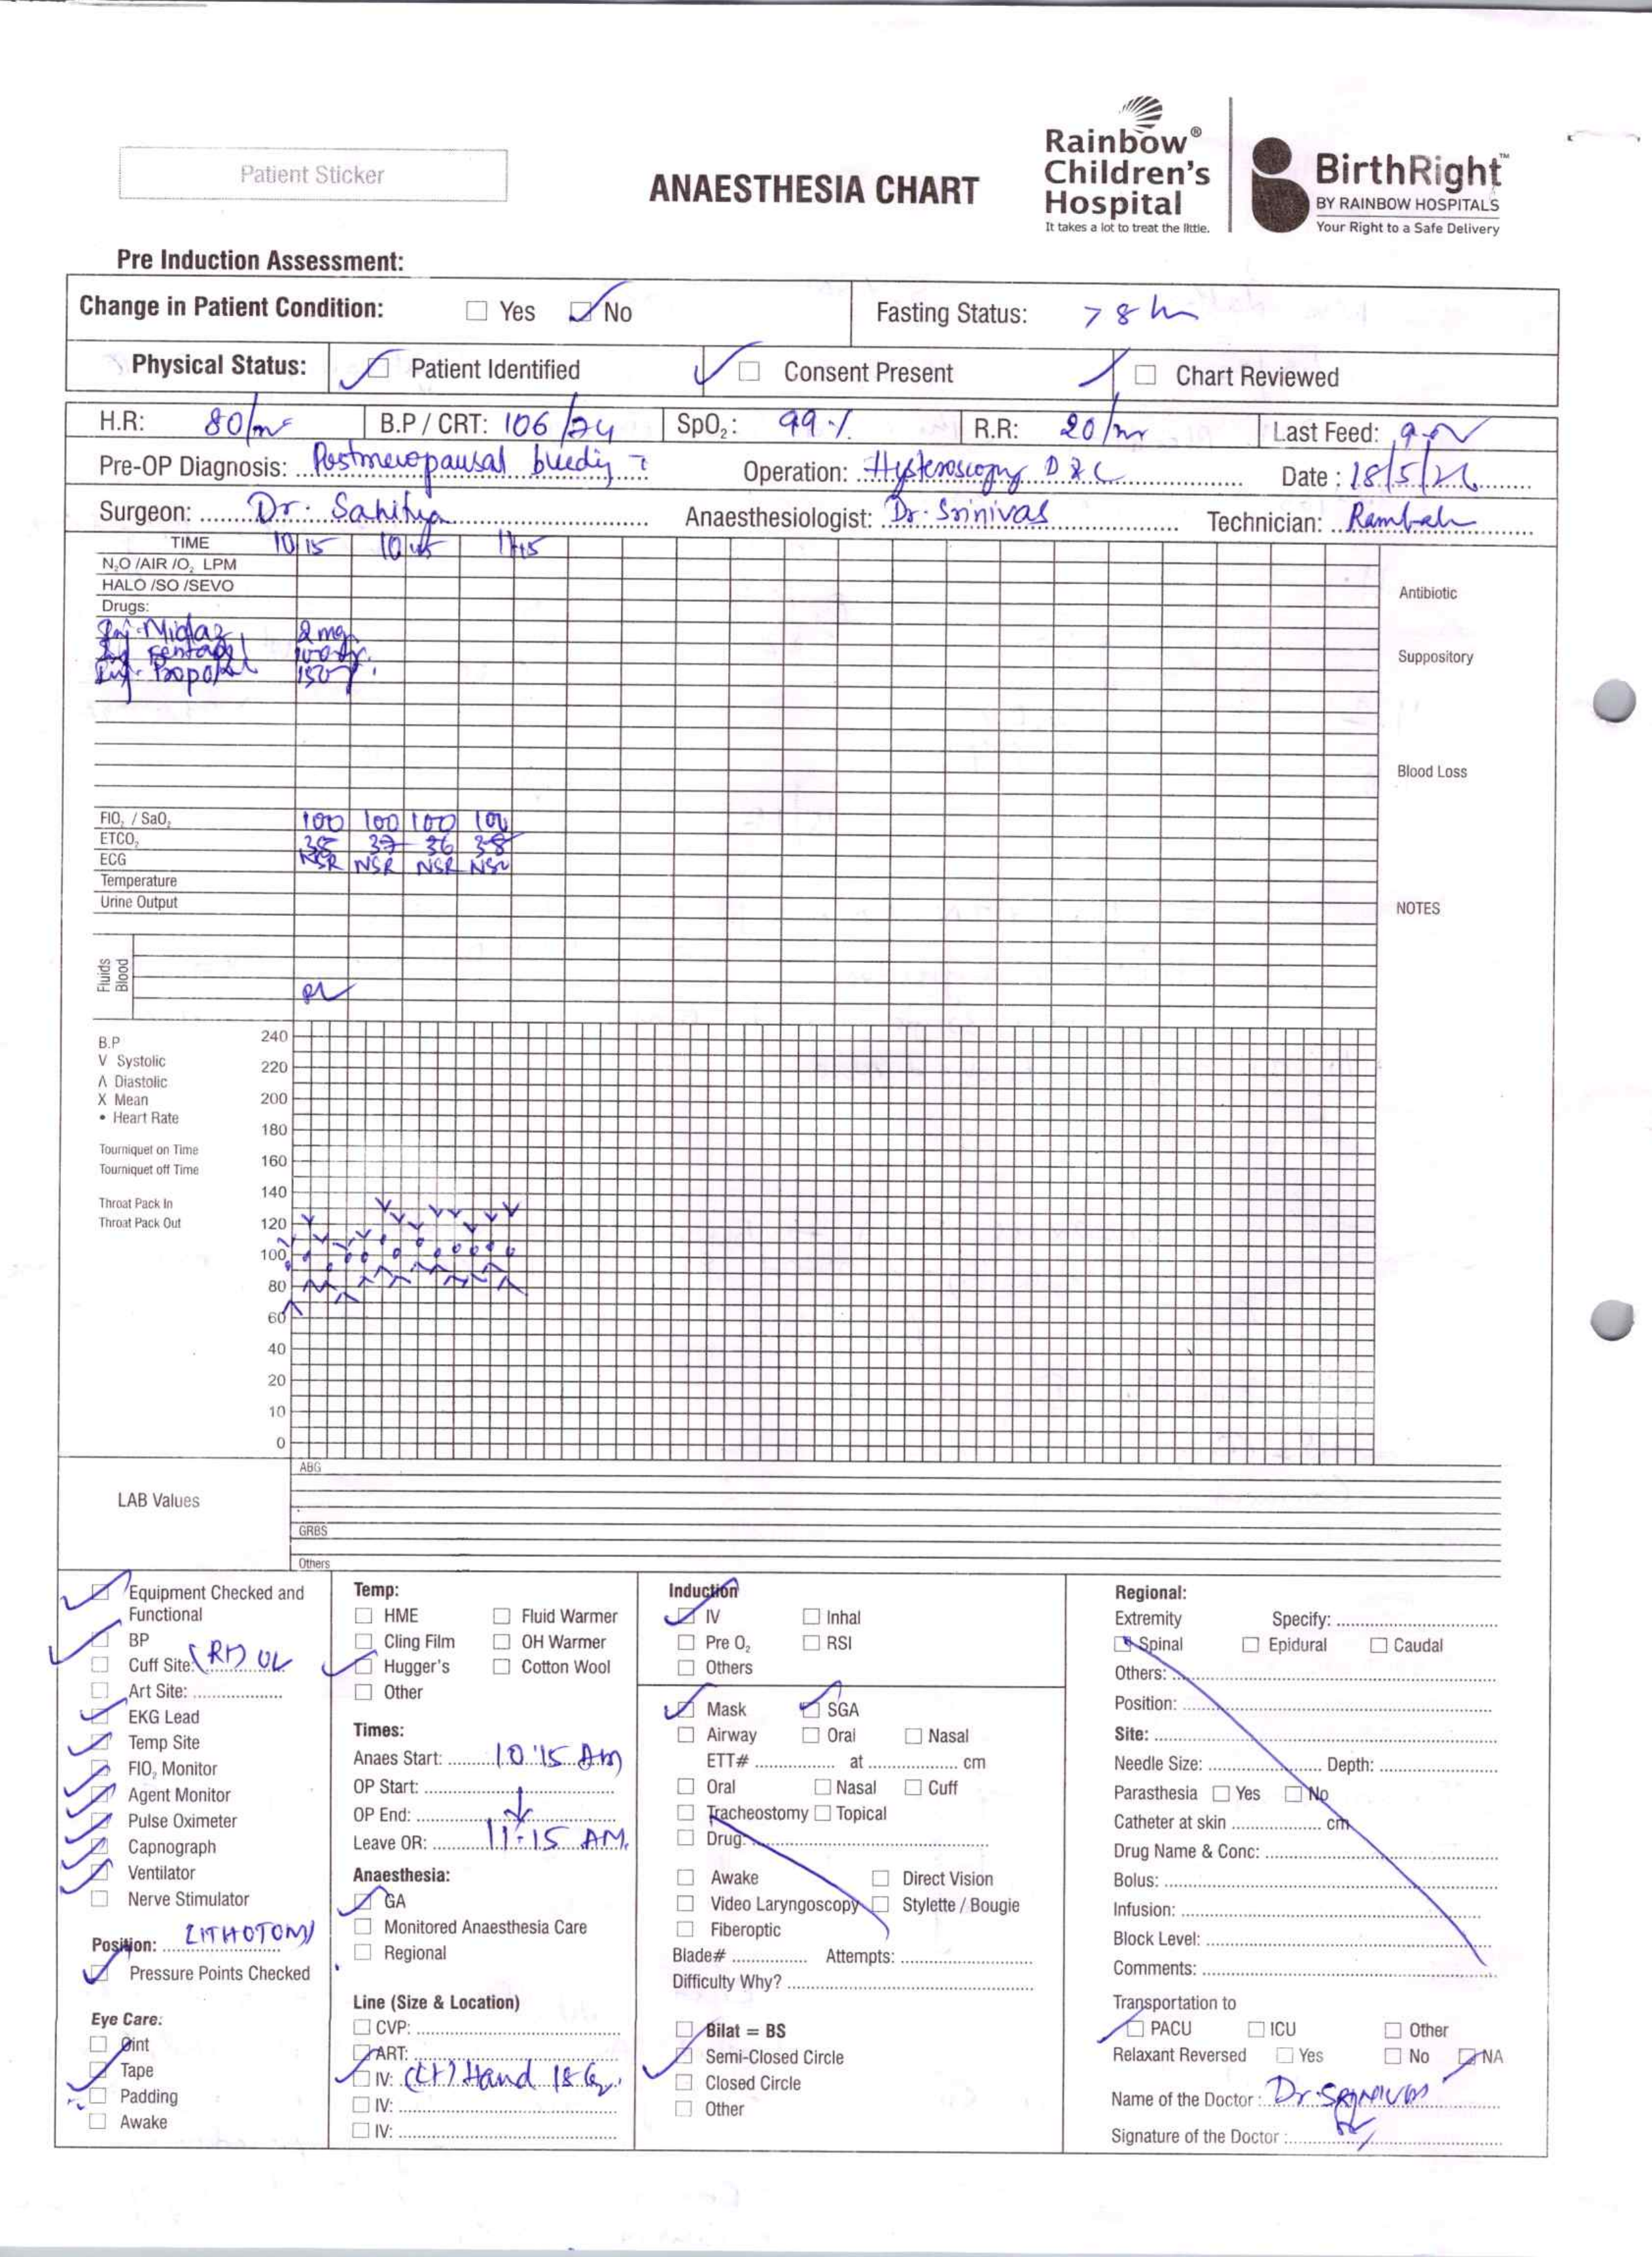 Patient Sticker
ANAESTHESIA CHART
Rainbow®
Children's
Hospital
It takes a lot to treat the little.
BirthRight™
BY RAINBOW HOSPITALS
Your Right to a Safe Delivery
Pre Induction Assessment:
Change in Patient Condition: Yes No Fasting Status: > 8 h
Physical Status: Patient Identified Consent Present Chart Reviewed
H.R: 80/m B.P / CRT: 106/74 SpO2: 99 % R.R: 20/m Last Feed:
Pre-OP Diagnosis: Postmenopausal bleeding Operation: Hysteroscopy D & C Date: 18/5/26
Surgeon: Dr. Sahitya Anaesthesiologist: Dr. Srinivas Technician:
TIME 10 15 10 45 11 15
N2O /AIR /O2 LPM
HALO /SO /SEVO
Drugs:
Inj. Midaz 2 mg
Inj. Fentanyl
Inj. Propofol
Antibiotic
Suppository
Blood Loss
FIO2 / SaO2 100 100 100 100
ETCO2 38 37 36 38
ECG NSR NSR NSR NSR
Temperature
Urine Output
NOTES
Fluids
Blood
B.P
V Systolic
Λ Diastolic
X Mean
• Heart Rate
Tourniquet on Time
Tourniquet off Time
Throat Pack In
Throat Pack Out
240
220
200
180
160
140
120
100
80
60
40
20
10
0
LAB Values
ABG
GRBS
Others
Equipment Checked and
Functional
BP
Cuff Site: (Rt) UL
Art Site:
EKG Lead
Temp Site
FIO2 Monitor
Agent Monitor
Pulse Oximeter
Capnograph
Ventilator
Nerve Stimulator
Position: LITHOTOMY
Pressure Points Checked
Eye Care:
Oint
Tape
Padding
Awake
Temp:
HME Fluid Warmer
Cling Film OH Warmer
Hugger's Cotton Wool
Other
Times:
Anaes Start: 10:15 Am
OP Start:
OP End:
Leave OR: 11:15 AM.
Anaesthesia:
GA
Monitored Anaesthesia Care
Regional
Line (Size & Location)
CVP:
ART:
IV: (Lt) Hand 18 G.
IV:
IV:
Induction
IV Inhal
Pre O2 RSI
Others
Mask SGA
Airway Oral Nasal
ETT# at cm
Oral Nasal Cuff
Tracheostomy Topical
Drug
Awake Direct Vision
Video Laryngoscopy Stylette / Bougie
Fiberoptic
Blade# Attempts:
Difficulty Why?
Bilat = BS
Semi-Closed Circle
Closed Circle
Other
Regional:
Extremity Specify:
Spinal Epidural Caudal
Others:
Position:
Site:
Needle Size: Depth:
Parasthesia Yes No
Catheter at skin cm
Drug Name & Conc:
Bolus:
Infusion:
Block Level:
Comments:
Transportation to
PACU ICU Other
Relaxant Reversed Yes No NA
Name of the Doctor: Dr. SRINIVAS
Signature of the Doctor: